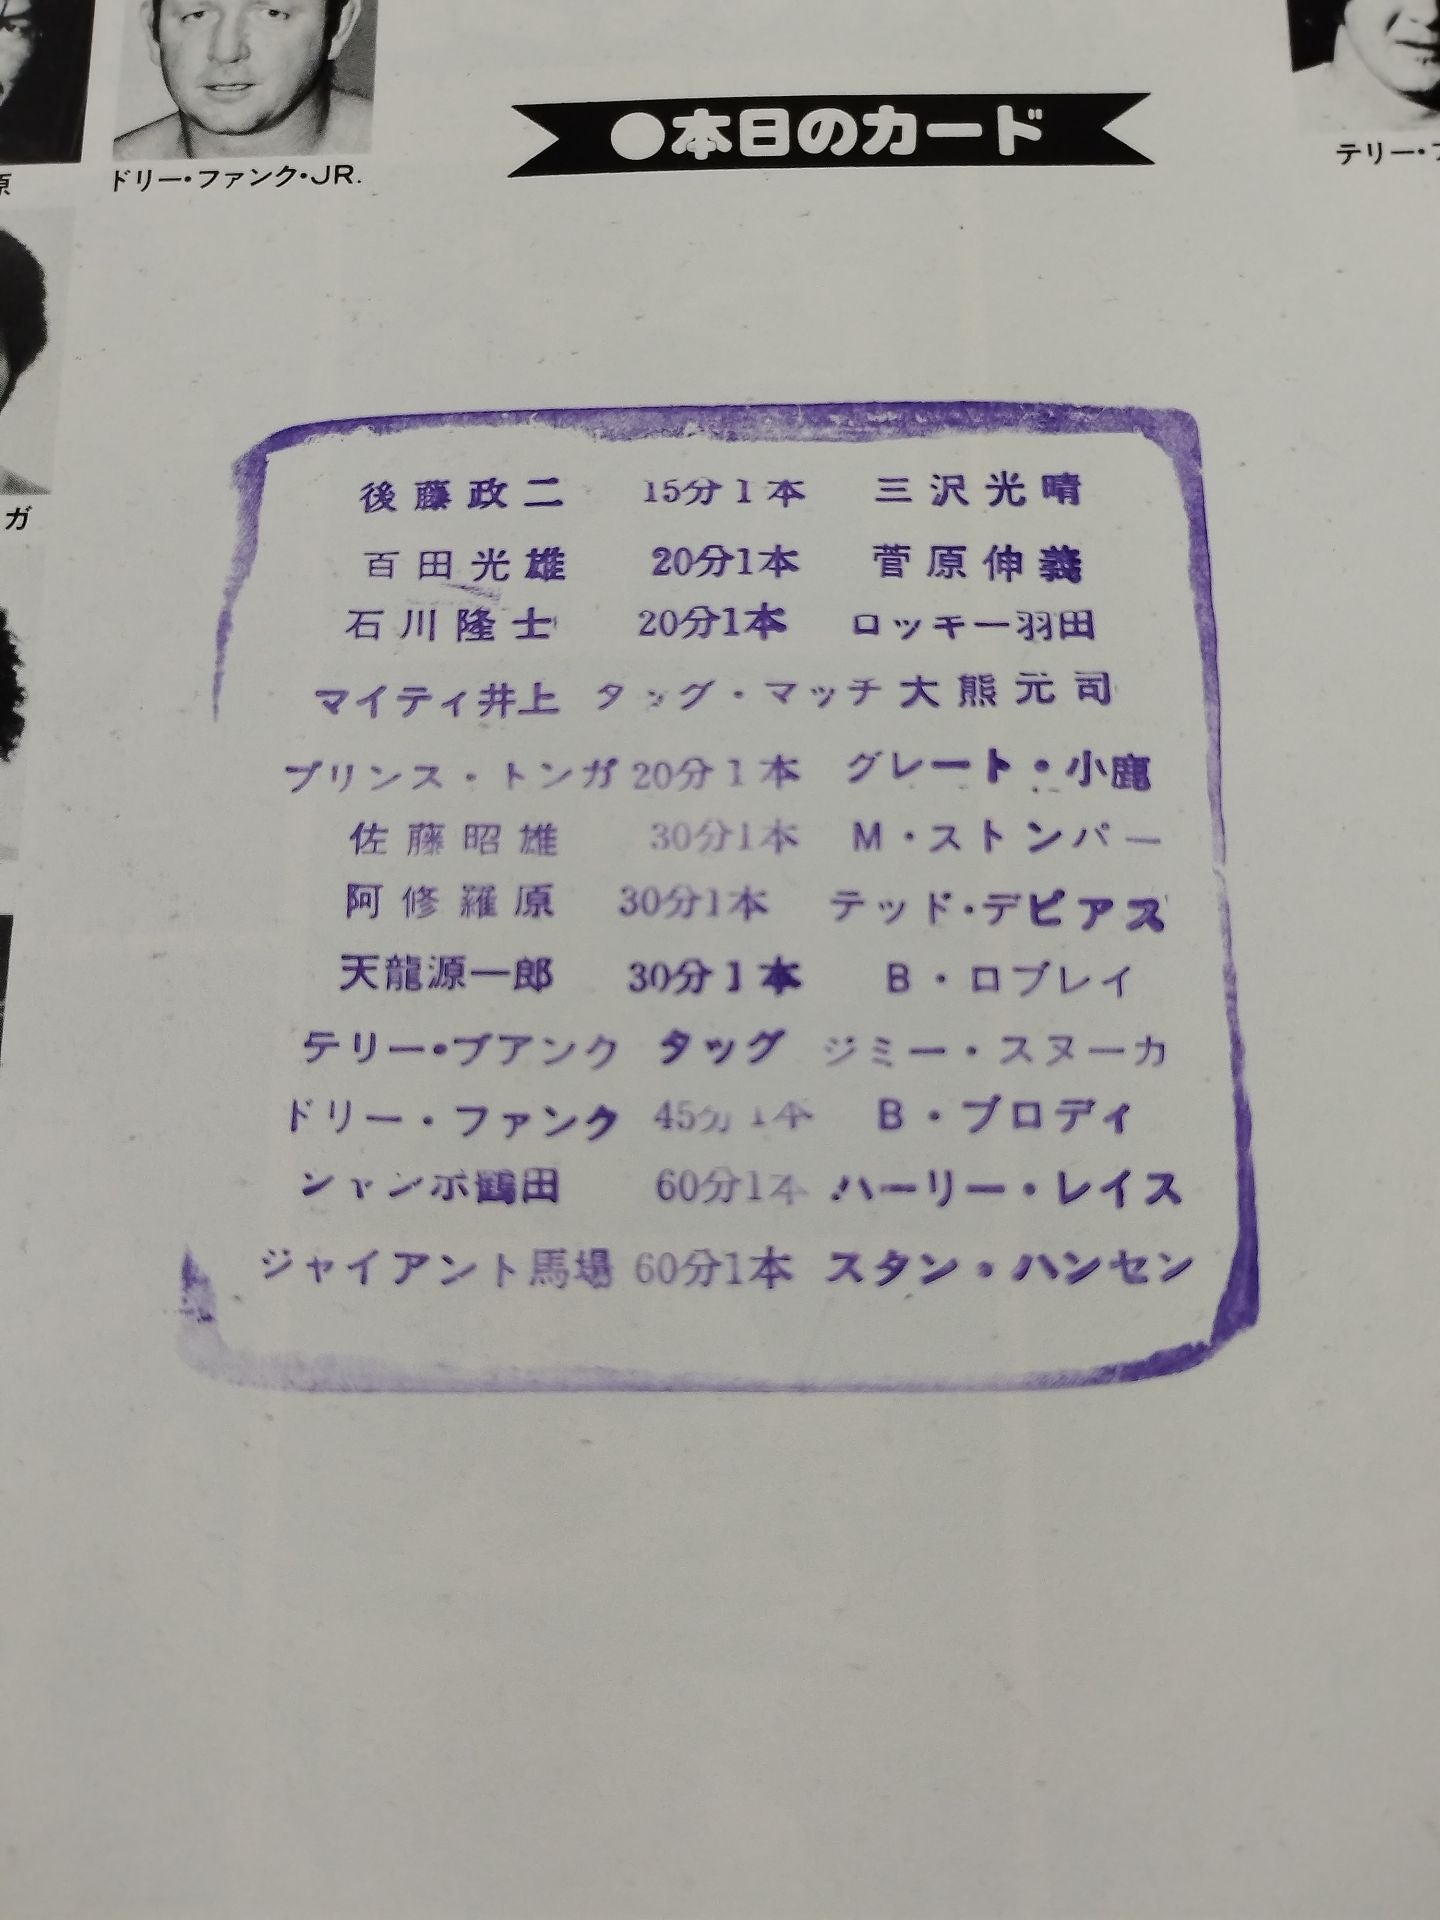 原
ドリー・ファンク・JR.
●本日のカード
テリー・フ
ガ
後藤政二 15分1本 三沢光晴
百田光雄 20分1本 菅原伸義
石川隆士 20分1本 ロッキー羽田
マイティ井上 タッグ・マッチ 大熊元司
プリンス・トンガ 20分1本 グレート・小鹿
佐藤昭雄 30分1本 M・ストンパー
阿修羅原 30分1本 テッド・デビアス
天龍源一郎 30分1本 B・ロブレイ
テリー・ブアンク タッグ ジミー・スヌーカ
ドリー・ファンク 45分1本 B・ブロディ
ジャンボ鶴田 60分1本 ハーリー・レイス
ジャイアント馬場 60分1本 スタン・ハンセン